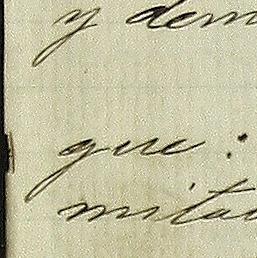 y dem
que :
mitad